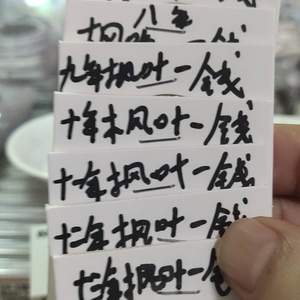 八年
枫叶一钱
九年枫叶一钱
十年枫叶一钱
十一年枫叶一钱
十二年枫叶一钱
枫叶一钱